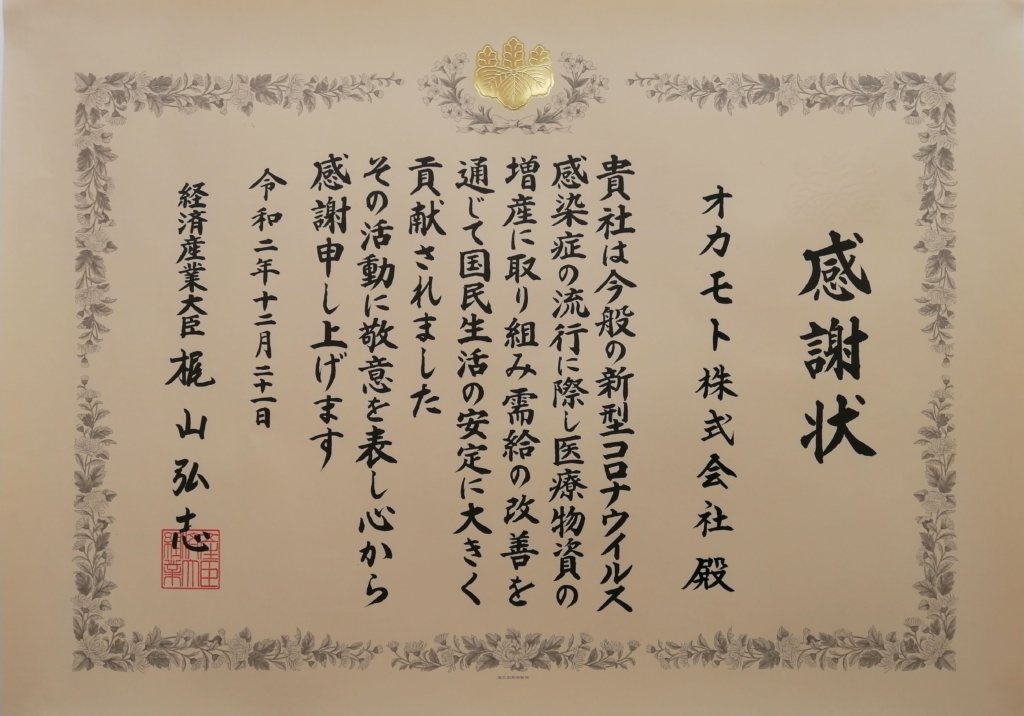 感謝状
オカモト株式会社殿
貴社は今般の新型コロナウイルス
感染症の流行に際し医療物資の
増産に取り組み需給の改善を
通じて国民生活の安定に大きく
貢献されました
その活動に敬意を表し心から
感謝申し上げます
令和二年十二月二十一日
経済産業大臣 梶山弘志